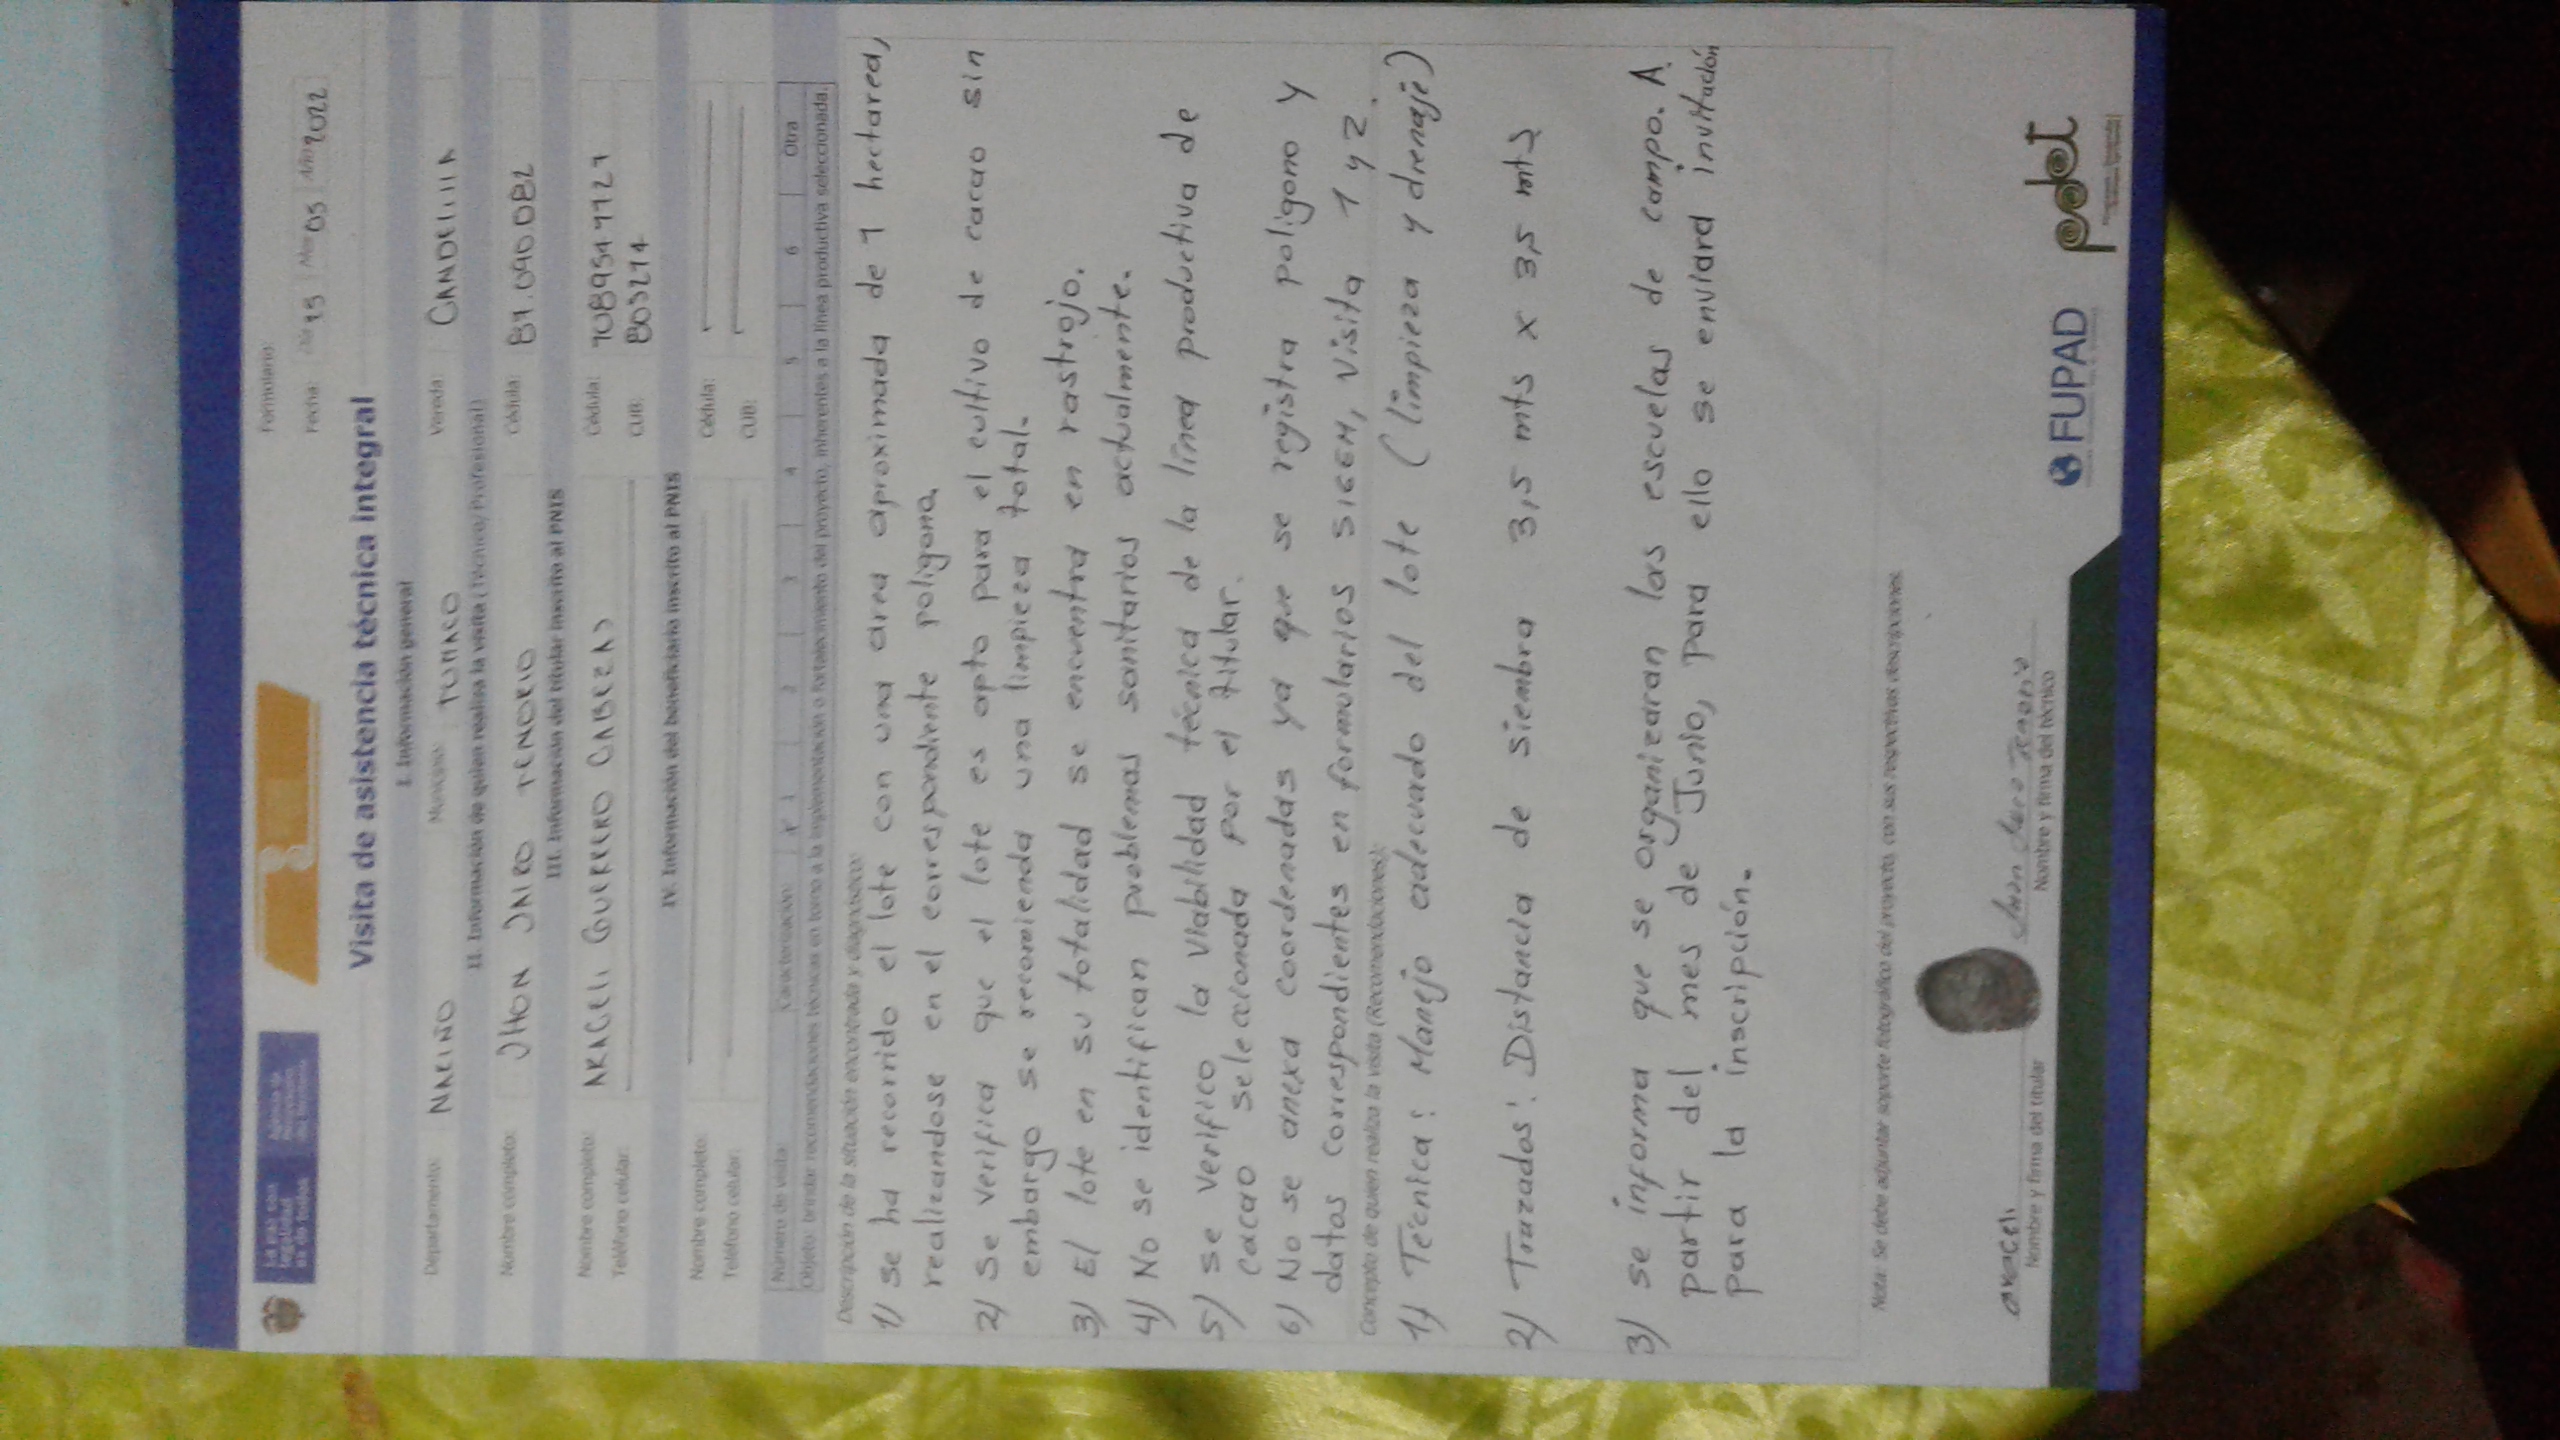 Formulario:
Fecha: Día 15 Mes 05 Año 2022
Visita de asistencia técnica integral
I. Información general
Departamento: NARIÑO Municipio: TUMACO Vereda: CANDELILLA
II. Información de quien realiza la visita (Técnico/Profesional)
Nombre completo: JHON JAIRO TENORIO Cédula: 87.090.082
III. Información del titular inscrito al PNIS
Nombre completo: ARACELI GUERRERO CABEZAS Cédula:
Teléfono celular: CUB: 803214
IV. Información del beneficiario inscrito al PNIS
Nombre completo: Cédula:
Teléfono celular: CUB:
Número de visita: Caracterización: X 1 2 3 4 5 6 Otra
Objeto: brindar recomendaciones técnicas en torno a la implementación o fortalecimiento del proyecto, inherentes a la línea productiva seleccionada.
Descripción de la situación encontrada y diagnóstico:
1) Se ha recorrido el lote con una area aproximada de 1 hectarea,
realizandose en el correspondiente poligono.
2) Se verifica que el lote es apto para el cultivo de cacao sin
embargo se recomienda una limpieza total.
3) El lote en su totalidad se encuentra en rastrojo.
4) No se identifican problemas sanitarios actualmente.
5) se verifico la viabilidad técnica de la línea productiva de
cacao seleccionada por el titular.
6) No se anexa coordenadas ya que se registra poligono y
datos correspondientes en formularios SIGEM, visita 1 y 2.
Concepto de quien realiza la visita (Recomendaciones):
1) Técnica: Manejo adecuado del lote (limpieza y drenaje)
2) Trazados: Distancia de siembra 3,5 mts x 3,5 mts
3) se informa que se organizaran las escuelas de campo. A
partir del mes de Junio, para ello se enviara invitación
para la inscripción.
Nota: Se debe adjuntar soporte fotográfico del proyecto, con sus respectivas descripciones.
araceli
Jhon Jairo Tenorio
Nombre y firma del titular
Nombre y firma del técnico
FUPAD
pdet